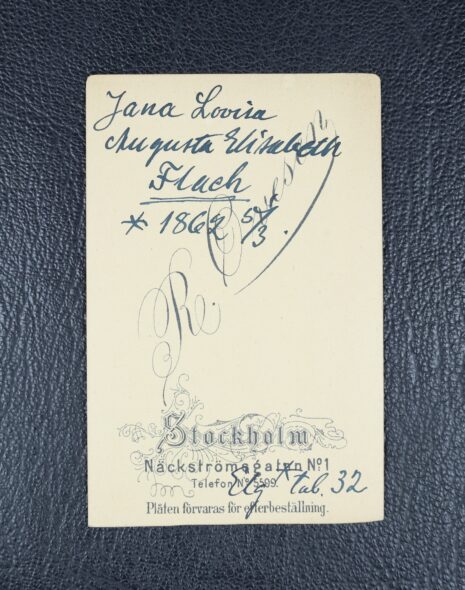 Jana Lovisa
Augusta Elisabeth
Flach
* 1862 5/3.
Stockholm
Näckströmsgatan Nº1
Telefon Nº 5599.
Elg * tab. 32
Plåten förvaras för efterbeställning.